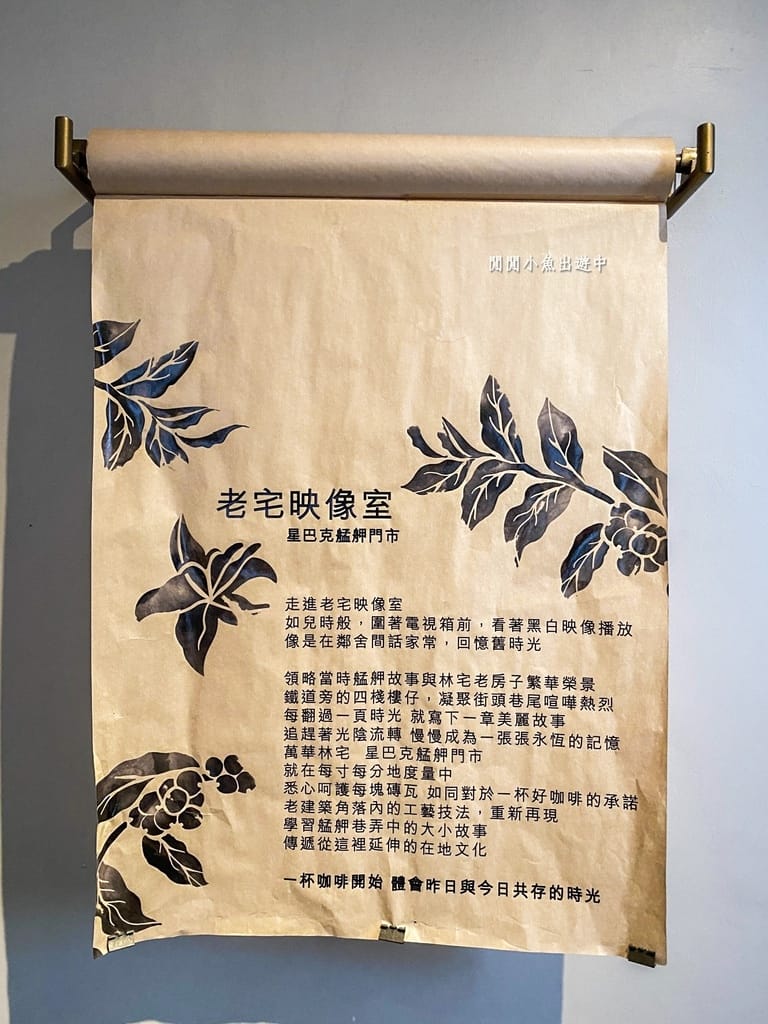 閒閒小魚出遊中
老宅映像室
星巴克艋舺門市
走進老宅映像室
如兒時般，圍著電視箱前，看著黑白映像播放
像是在鄰舍間話家常，回憶舊時光
領略當時艋舺故事與林宅老房子繁華榮景
鐵道旁的四棧樓仔，凝聚街頭巷尾喧嘩熱烈
每翻過一頁時光 就寫下一章美麗故事
追趕著光陰流轉 慢慢成為一張張永恆的記憶
萬華林宅 星巴克艋舺門市
就在每寸每分地度量中
悉心呵護每塊磚瓦 如同對於一杯好咖啡的承諾
老建築角落內的工藝技法，重新再現
學習艋舺巷弄中的大小故事
傳遞從這裡延伸的在地文化
一杯咖啡開始 體會昨日與今日共存的時光